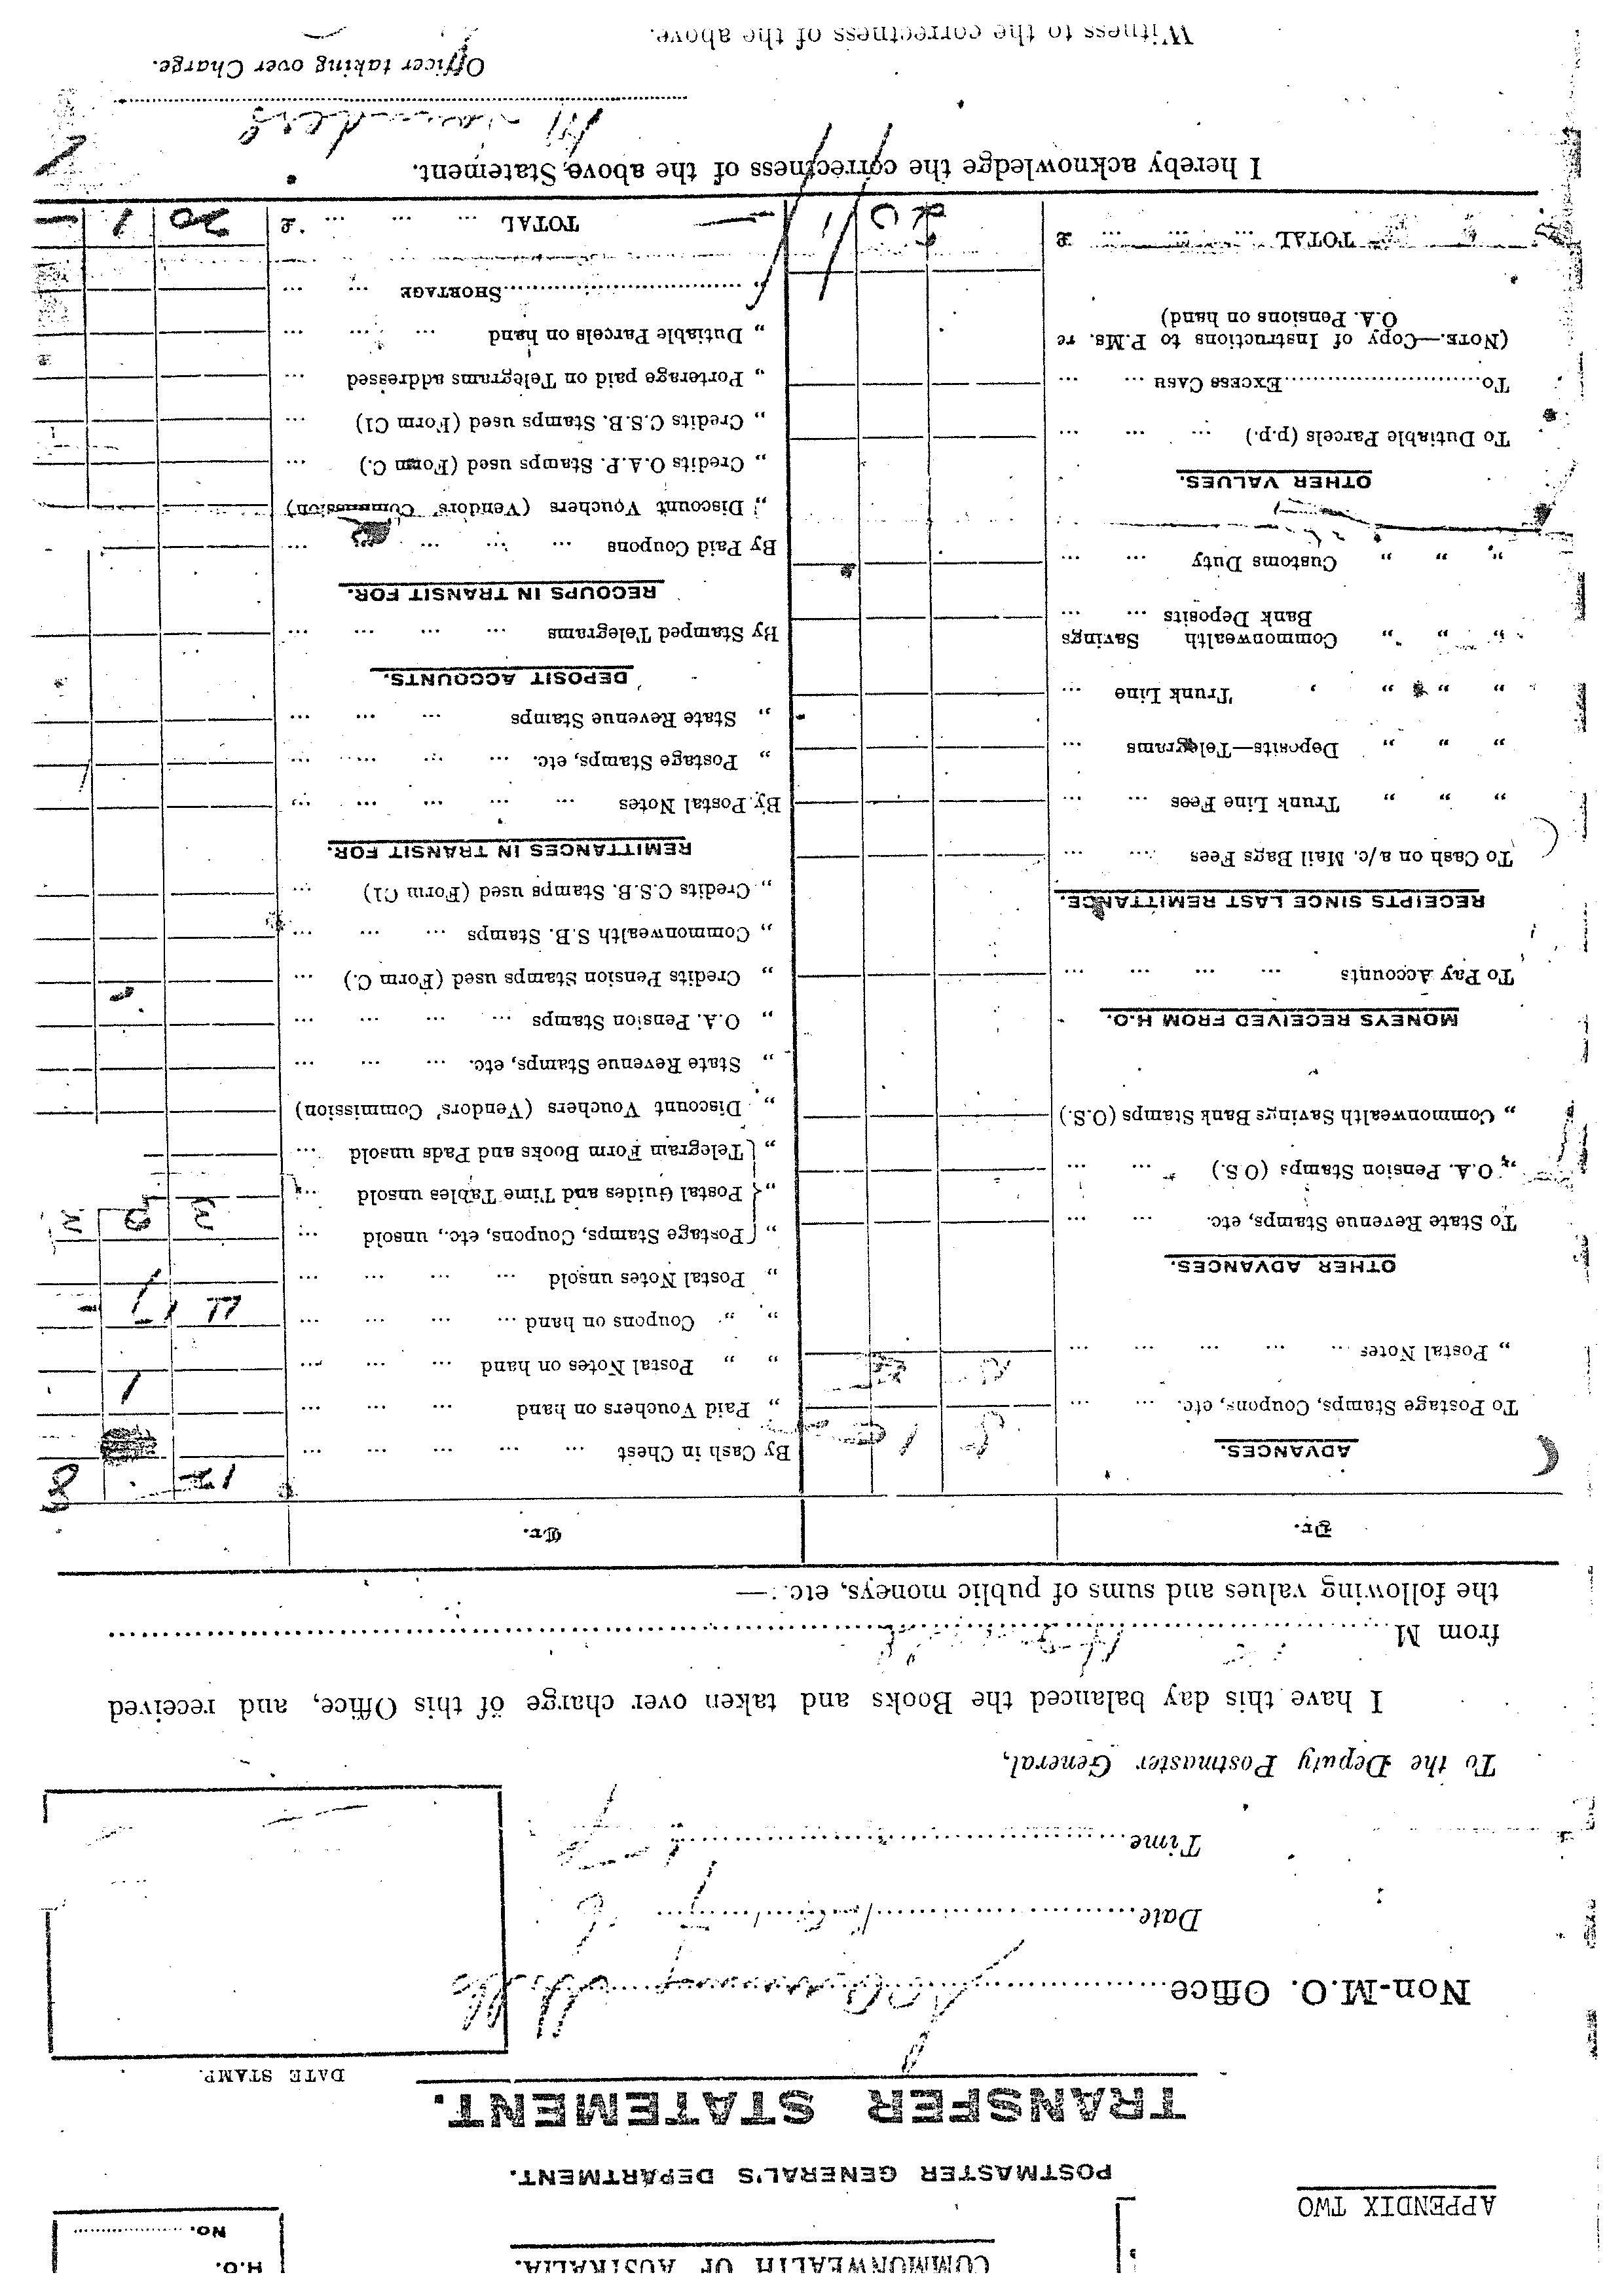 COMMONWEALTH OF AUSTRALIA.
H.O.
No. ....................
APPENDIX TWO
POSTMASTER GENERAL'S DEPARTMENT.
TRANSFER STATEMENT.
DATE STAMP.
Non-M.O. Office
Date
Time
To the Deputy Postmaster General,
I have this day balanced the Books and taken over charge of this Office, and received
from M
the following values and sums of public moneys, etc.:—
Dr.
ADVANCES.
To Postage Stamps, Coupons, etc. ... ...
„ Postal Notes ... ... ... ...
OTHER ADVANCES.
To State Revenue Stamps, etc. ... ...
„ O.A. Pension Stamps (O.S.) ... ...
„ Commonwealth Savings Bank Stamps (O.S.)
MONEYS RECEIVED FROM H.O.
To Pay Accounts ... ... ... ...
RECEIPTS SINCE LAST REMITTANCE.
To Cash on a/c. Mail Bags Fees ... ...
„ „ „ Trunk Line Fees ... ...
„ „ „ Deposits—Telegrams ...
„ „ „ „ Trunk Line ...
„ „ „ Commonwealth Savings
Bank Deposits ... ...
„ „ „ Customs Duty ... ...
OTHER VALUES.
To Dutiable Parcels (p.p.) ... ... ...
To..............................Excess Cash ... ...
(NOTE.—Copy of Instructions to P.Ms. re
O.A. Pensions on hand)
TOTAL ... ... ... £
Cr.
By Cash in Chest ... ... ... ... ... 12 8
„ Paid Vouchers on hand ... ... ... 1
„ „ Postal Notes on hand ... ... ...
„ „ Coupons on hand ... ... ... ...
„ Postal Notes unsold ... ... ... ...
„ Postage Stamps, Coupons, etc., unsold ...
„ Postal Guides and Time Tables unsold ...
„ Telegram Form Books and Pads unsold ...
„ Discount Vouchers (Vendors' Commission)
„ State Revenue Stamps, etc. ... ... ...
„ O.A. Pension Stamps ... ... ... ...
„ Credits Pension Stamps used (Form C.) ...
„ Commonwealth S.B. Stamps ... ... ...
„ Credits C.S.B. Stamps used (Form C1) ...
REMITTANCES IN TRANSIT FOR.
By Postal Notes ... ... ... ... ...
„ Postage Stamps, etc. ... ... ... ...
„ State Revenue Stamps ... ... ...
DEPOSIT ACCOUNTS.
By Stamped Telegrams ... ... ... ...
RECOUPS IN TRANSIT FOR.
By Paid Coupons ... ... ... ... ...
„ Discount Vouchers (Vendors' Commission)
„ Credits O.A.P. Stamps used (Form C.) ...
„ Credits C.S.B. Stamps used (Form C1) ...
„ Porterage paid on Telegrams addressed ...
„ Dutiable Parcels on hand ... ... ...
„ ..............................SHORTAGE ... ...
TOTAL ... ... ... £ 20 1 —
I hereby acknowledge the correctness of the above Statement.
Officer taking over Charge.
Witness to the correctness of the above.